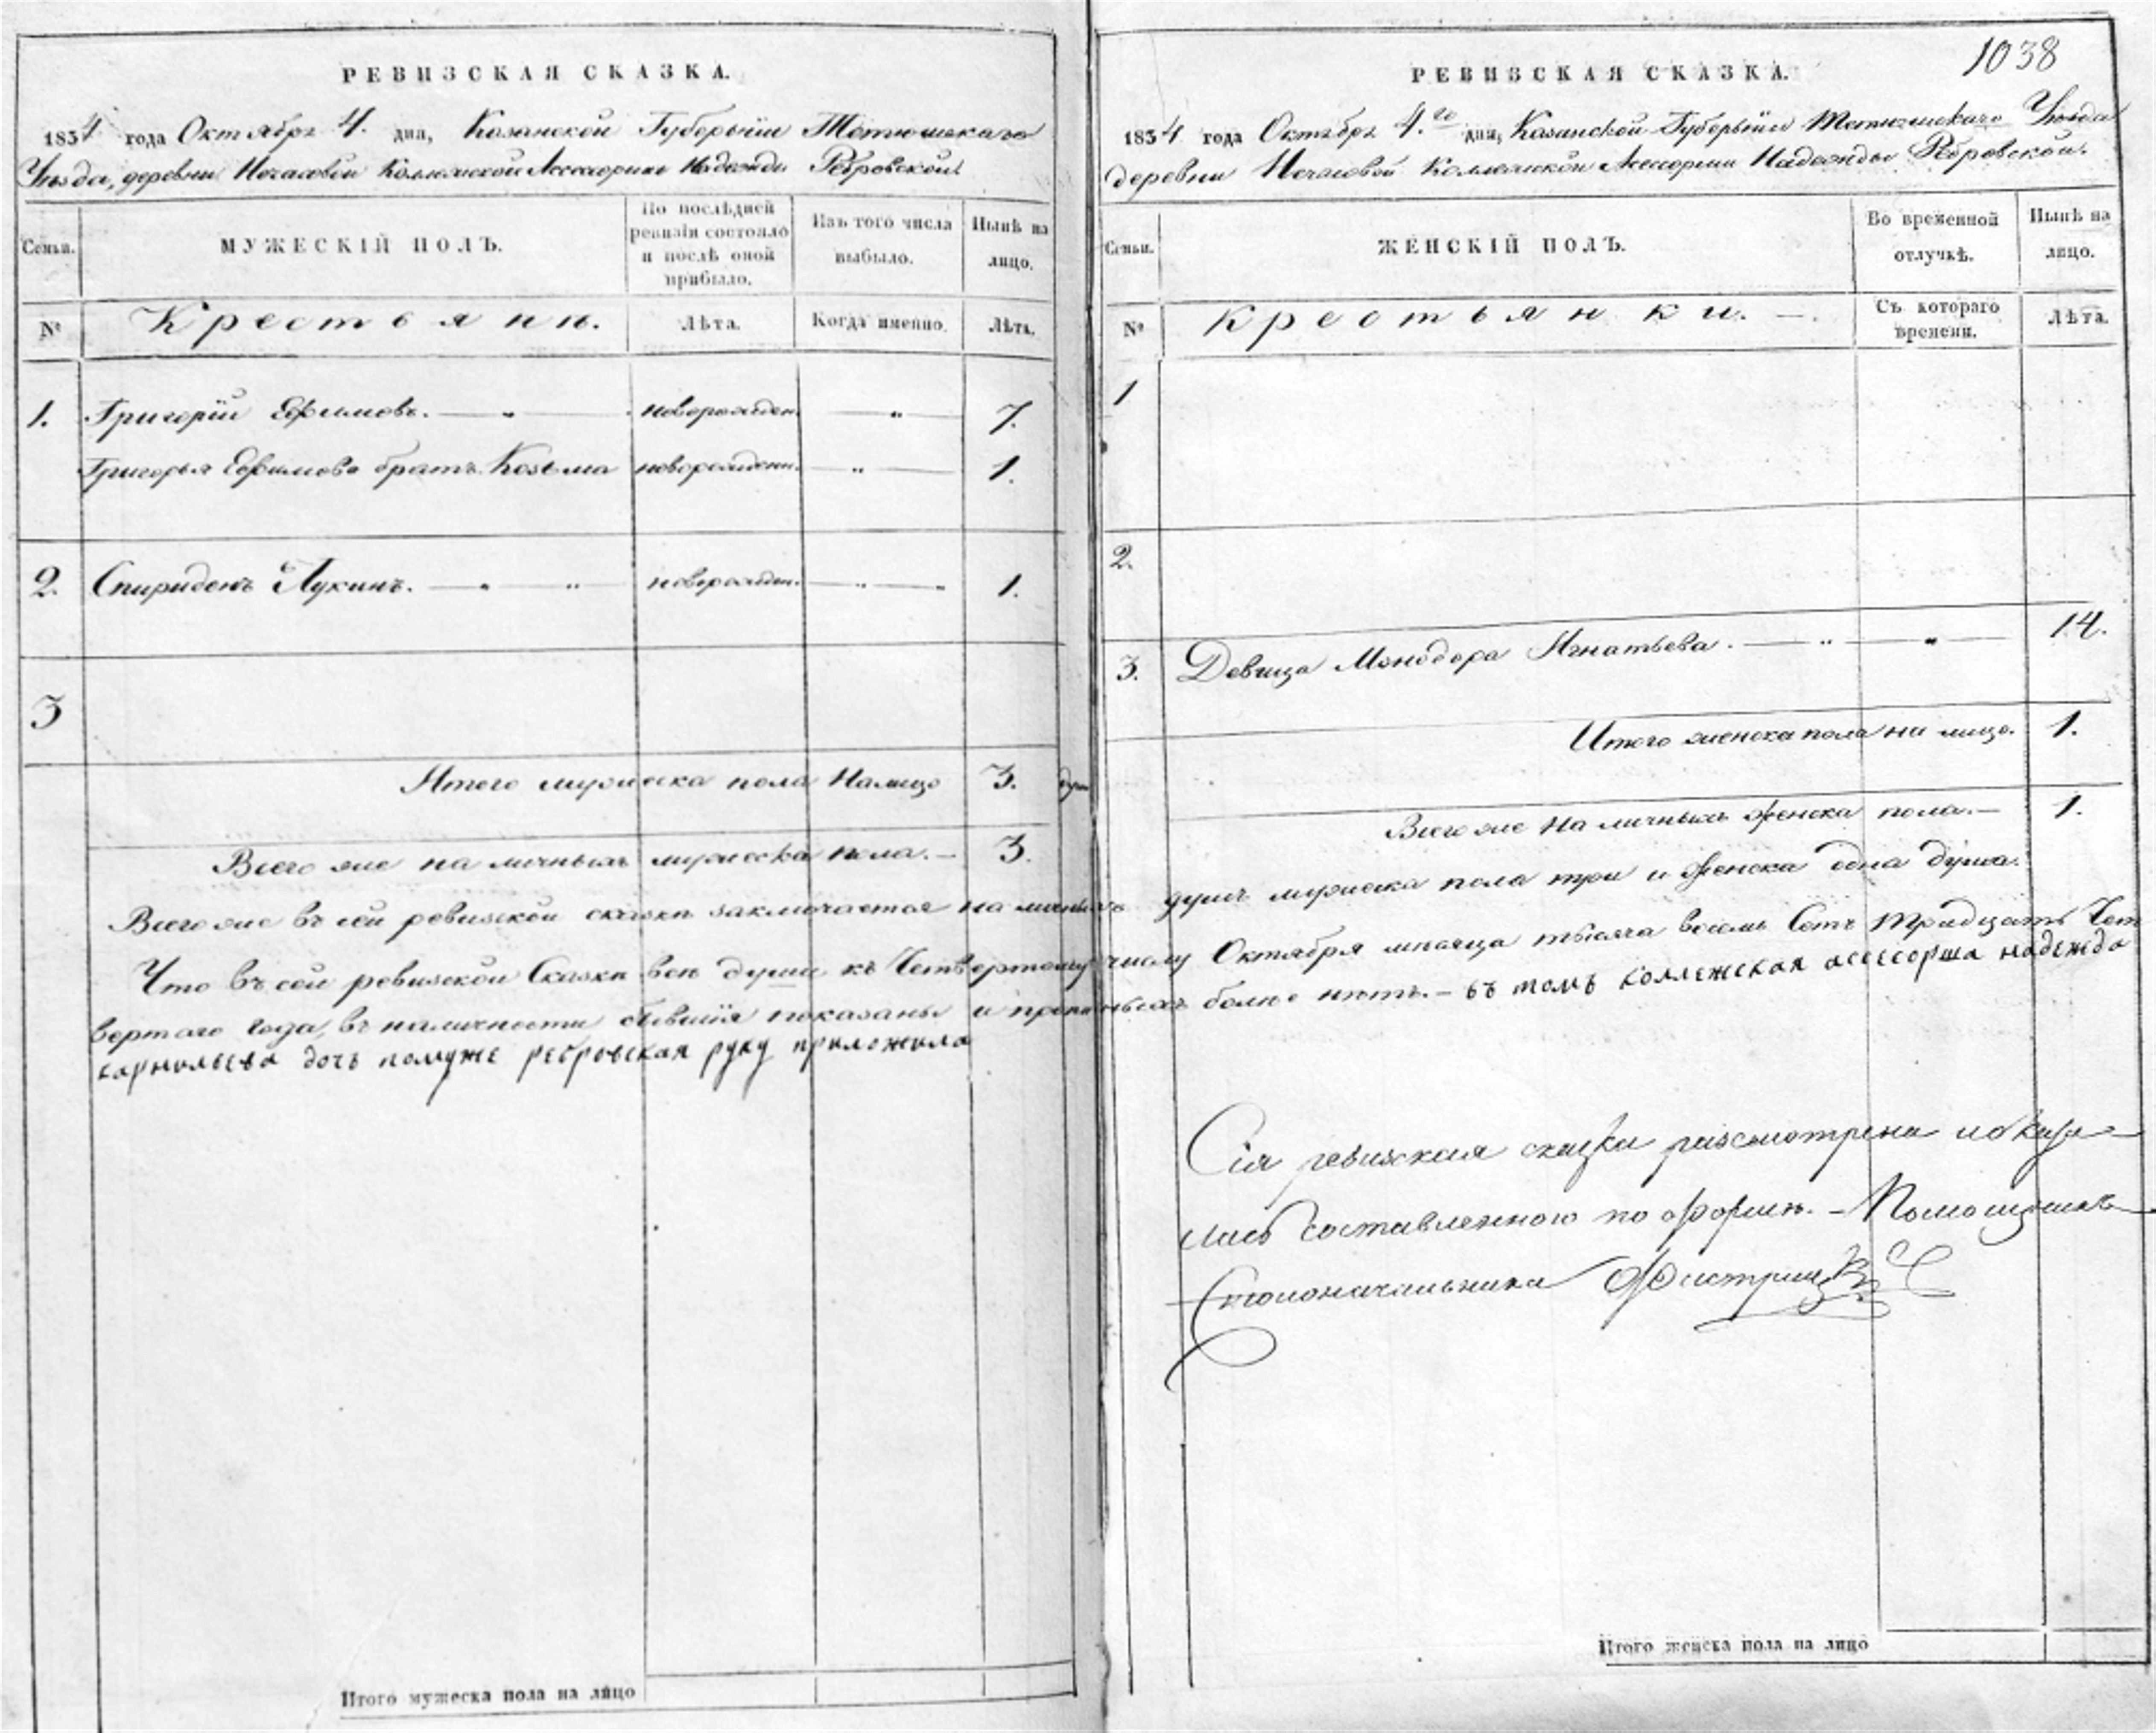 РЕВИЗСКАЯ СКАЗКА.
1834 года Октября 4. дня, Казанской Губернїи Тетюшскаго
Уѣзда, деревни Нечасовой Колежской Ассесорши Надежды Ребровской
Семьи.
МУЖЕСКІЙ ПОЛЪ.
По послѣдней ревизіи состояло и послѣ оной прибыло.
Изъ того числа выбыло.
Нынѣ на лицо.
№
Крестьяни.
Лѣта.
Когда именно.
Лѣта.
1. Григорїй Ефимовъ. — „ — новорожден. — „ — 7.
Григорья Ефимова братъ Козьма новорожденн. — „ — 1.
2. Спиридонъ Лукинъ. — „ — „ новорожден. — „ — „ 1.
3
Итого мужеска пола Налицо 3. душ
Всего же на личныхъ мужеска пола. — 3.
Всего же въ сей ревизской сказкѣ заключается на личныхъ
Что въ сей ревизской Сказкѣ всѣ души къ Четвертому
вертаго года, въ наличности бывшїя показаны и
карнильева дочь помуже ребровская руку приложила
Итого мужеска пола на лицо
1038
РЕВИЗСКАЯ СКАЗКА.
1834 года Октября 4.го дня, Казанской Губернїи Тетюшскаго Уѣзда
деревни Нечасовой Колежской Ассесорши Надежды Ребровской.
Семьи.
ЖЕНСКІЙ ПОЛЪ.
Во временной отлучкѣ.
Нынѣ на лицо.
№
Крестьянки. —.
Съ котораго времени.
Лѣта.
1
2.
3. Девица Минодора Игнатьева. — „ — „ — 14.
Итого женска пола на лицо. 1.
Всего же на личныхъ женска пола. — 1.
душъ мужеска пола три и женска одна душа.
числу Октября мѣсяца тысяча восемь Сотъ тридцать Чет
болѣе нѣтъ. — въ томъ коллежская асессорша надежда
Сія ревизская сказка разсмотрена и оказа=
лась составленною по формѣ. — Помощникъ
Столоначальника
Итого женска пола на лицо